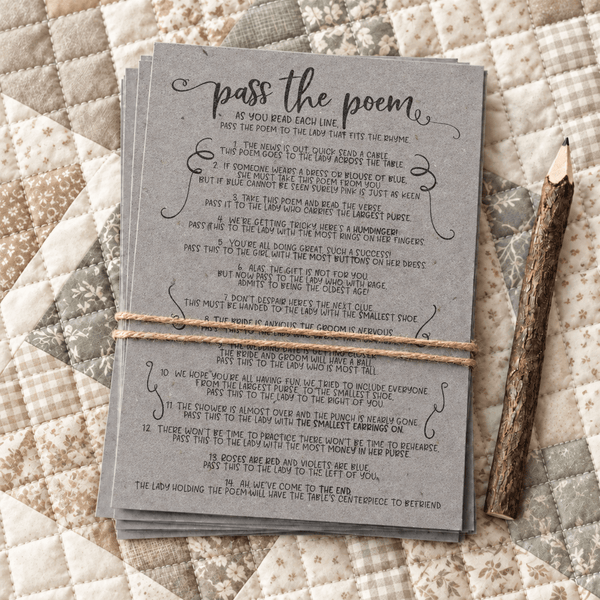 pass the poem
AS YOU READ EACH LINE,
PASS THE POEM TO THE LADY THAT FITS THE RHYME
1. THE NEWS IS OUT, QUICK SEND A CABLE
THIS POEM GOES TO THE LADY ACROSS THE TABLE.
2. IF SOMEONE WEARS A DRESS OR BLOUSE OF BLUE,
SHE MUST TAKE THIS POEM FROM YOU
BUT IF BLUE CANNOT BE SEEN SURELY PINK IS JUST AS KEEN
3. TAKE THIS POEM AND READ THE VERSE
PASS IT TO THE LADY WHO CARRIES THE LARGEST PURSE.
4. WE'RE GETTING TRICKY, HERE'S A HUMDINGER!
PASS THIS TO THE LADY WITH THE MOST RINGS ON HER FINGERS
5. YOU'RE ALL DOING GREAT, SUCH A SUCCESS!
PASS THIS TO THE GIRL WITH THE MOST BUTTONS ON HER DRESS
6. ALAS, THE GIFT IS NOT FOR YOU
BUT NOW PASS TO THE LADY WHO, WITH RAGE,
ADMITS TO BEING THE OLDEST AGE
7. DON'T DESPAIR HERE'S THE NEXT CLUE
THIS MUST BE HANDED TO THE LADY WITH THE SMALLEST SHOE
8. THE BRIDE IS ANXIOUS THE GROOM IS NERVOUS
PASS THIS TO THE
THE BRIDE AND GROOM WILL HAVE A BALL
PASS THIS TO THE LADY WHO IS MOST TALL
10. WE HOPE YOU'RE ALL HAVING FUN, WE TRIED TO INCLUDE EVERYONE
FROM THE LARGEST PURSE, TO THE SMALLEST SHOE
PASS THIS TO THE LADY TO THE RIGHT OF YOU
11. THE SHOWER IS ALMOST OVER AND THE PUNCH IS NEARLY GONE
PASS THIS TO THE LADY WITH THE SMALLEST EARRINGS ON.
12. THERE WON'T BE TIME TO PRACTICE THERE WON'T BE TIME TO REHEARSE,
PASS THIS TO THE LADY WITH THE MOST MONEY IN HER PURSE
13. ROSES ARE RED AND VIOLETS ARE BLUE,
PASS THIS TO THE LADY TO THE LEFT OF YOU
14. AH, WE'VE COME TO THE END
THE LADY HOLDING THE POEM WILL HAVE THE TABLE'S CENTERPIECE TO BEFRIEND